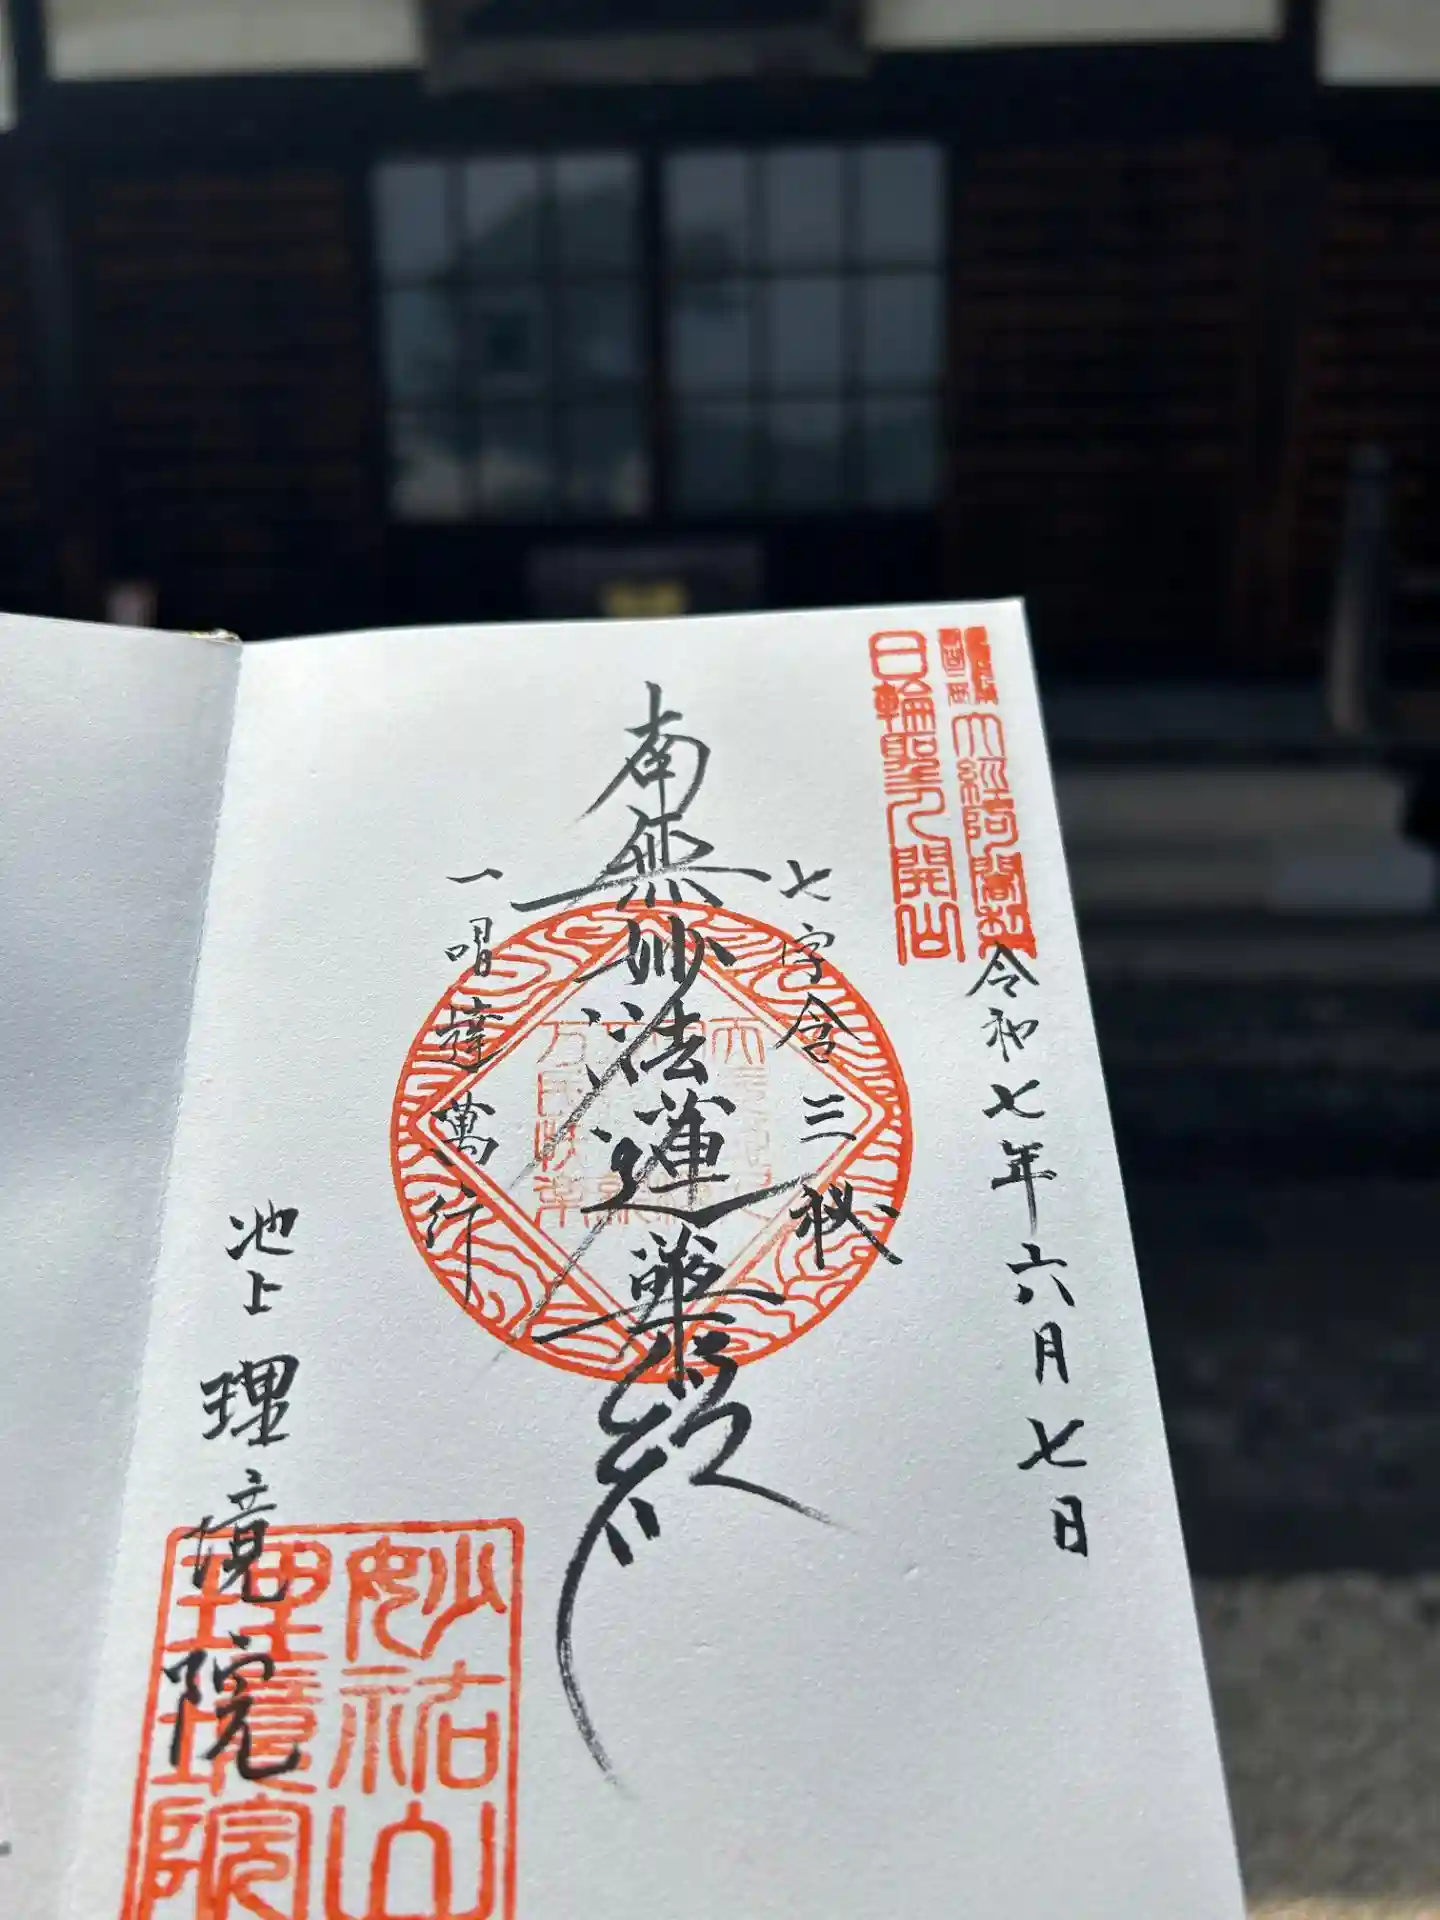 日輪聖人開山
令和七年六月七日
七字含三秘
南無妙法蓮華経
一唱達萬行
池上
理境院
妙祐山
理境院